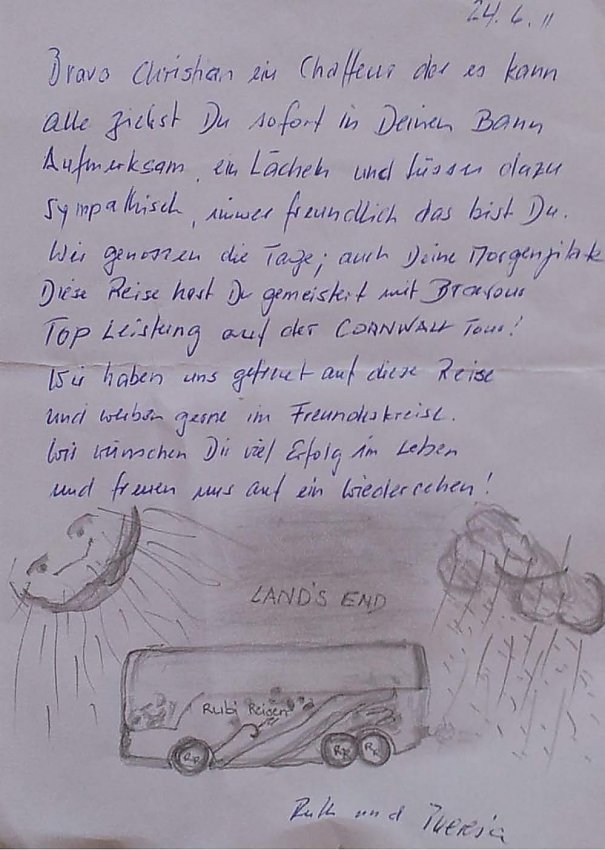 24.6.11
Bravo Christian ein Chaffeur der es kann
alle ziehst Du sofort in Deinen Bann
Aufmerksam, ein Lächeln und dazu
Sympathisch, immer freundlich das bist Du.
Wir genossen die Tage, auch Deine
Diese Reise hast Du gemeistert mit Bravour
Top Leistung auf der CORNWALL Tour!
Wir haben uns gefreut auf diese Reise
und werben gerne im Freundeskreise.
Wir wünschen Dir viel Erfolg im Leben
und freuen uns auf ein Wiedersehen!
LAND'S END
Rubi Reisen
RR RR RR
Ruth und Theresia